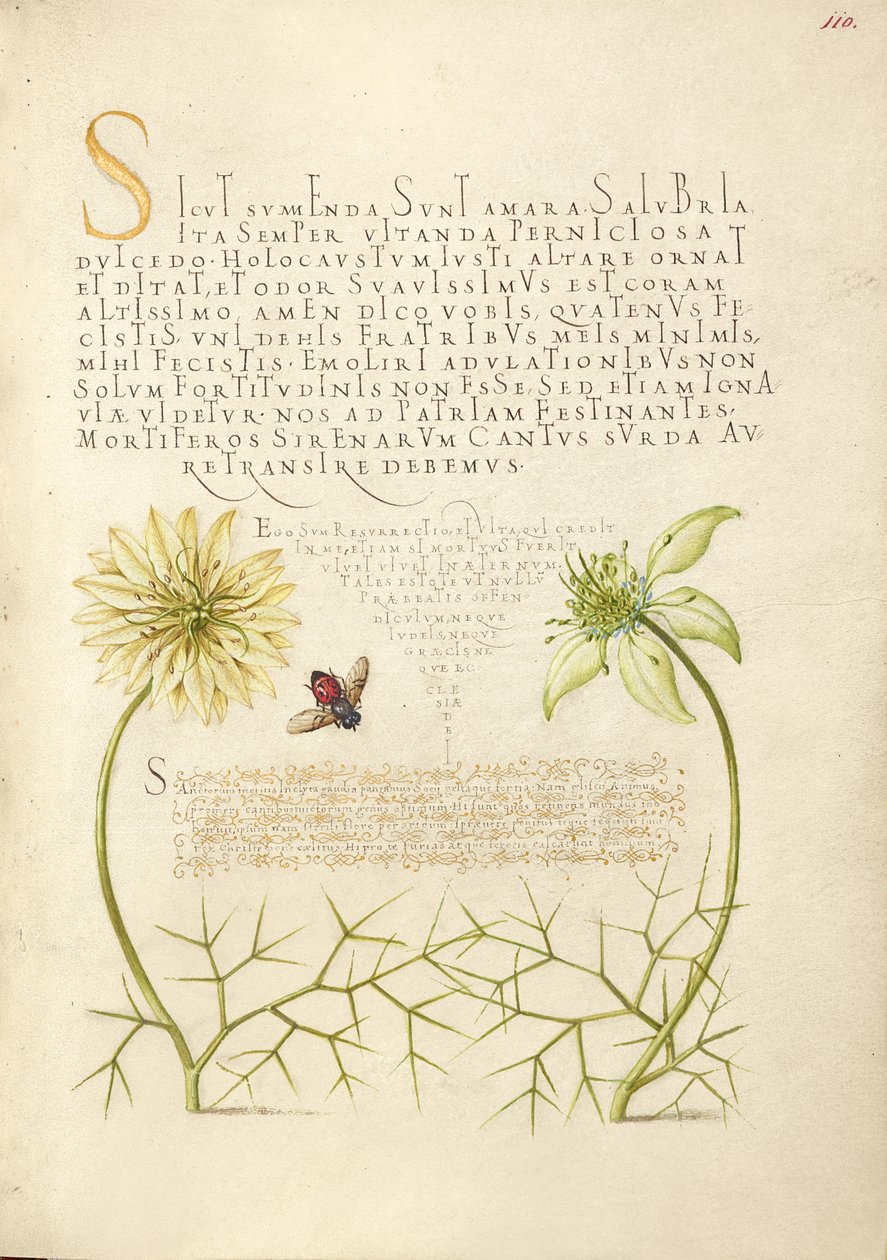 110.
SICUT SUMMENDA SUNT AMARA SALUBRIA
ITA SEMPER VITANDA PERNICIOSA
DVLCEDO· HOLOCAVSTVM IVSTI ALTARE ORNAT
ET DITAT, ET ODOR SVAVISSIMVS EST CORAM
ALTISSIMO, AMEN DICO VOBIS, QVATENVS FE⸗
CISTIS, VNI DE HIS FRATRIBVS MEIS MINIMIS,
MIHI FECISTIS· EMOLIRI ADVLATIONIBVS NON
SOLVM FORTITVDINIS NON ESSE, SED ETIAM IGNA⸗
VIÆ VIDETVR· NOS AD PATRIAM FESTINANTES,
MORTIFEROS SIRENARVM CANTVS SVRDA AV⸗
RE TRANSIRE DEBEMVS·
EGO SVM RESVRRECTIO, ET VITA, QVI CREDIT
IN ME, ETIAM SI MORTVVS FVERIT
VIVET VIVET IN ÆTERNVM·
TALES ESTOTE VT NVLLṼ
PRÆBEATIS OFFEN⸗
DICVLVM, NEQVE
IVDEIS, NEQVE
GRÆCIS, NE
QVE EC⸗
CLE
SIÆ
D
E
I
Sanctorum meritis Inclyta gaudia pangamus Socij gestaque fortia: Nam gliscit Animus,
promere cantibus victorum genus optimum. Hi sunt quos retinens mundus inho
horruit, ipsum nam sterili flore peraridum, Sprevere penitus, teque sequuti sunt
rex Christe bone cælitus. Hi pro te furias atque ferocia calcarunt hominum